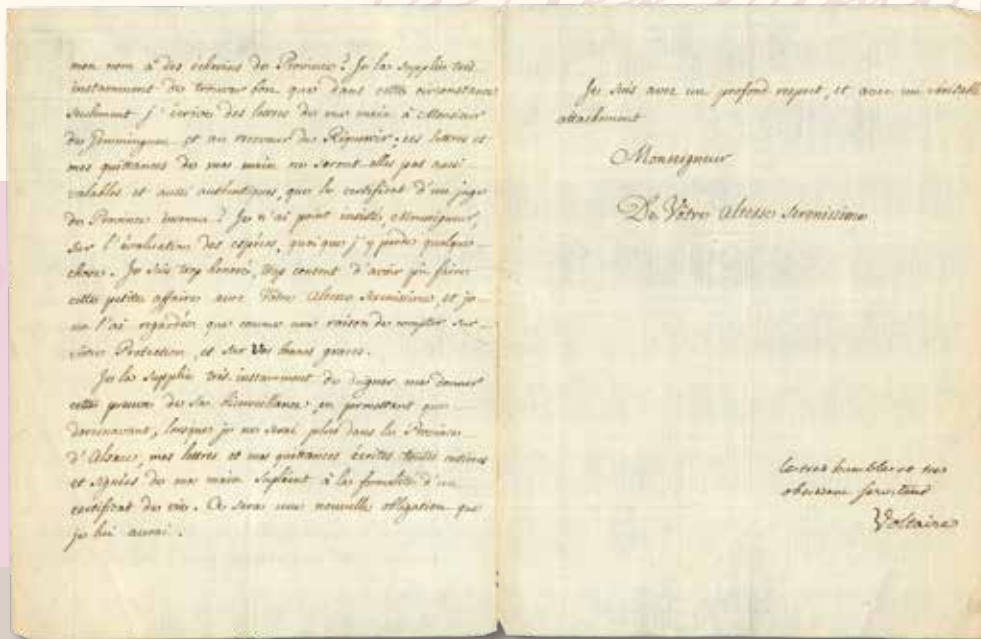 mon nom à des échevins de Province? Je la supplie très
instamment de trouver bon que dans cette circonstance
seulement j'écrive des lettres de ma main à Monsieur
de Jemminguen et au receveur de Riquevir; ces lettres et
mes quittances de ma main ne seront elles pas aussi
valables et aussi authentiques, que le certificat d'un juge
de Province ? Je n'ai point insisté, Monseigneur,
sur l'évaluation des espèces, quoi que j'y perde quelque
chose. Je suis trop honoré, trop content d'avoir pu faire
cette petite affaire avec Votre Altesse Serenissime, et je
ne l'ai regardée que comme une raison de compter sur
vôtre Protection, et sur Vos bonnes graces.
Je la supplie très instamment de daigner me donner
cette preuve de sa bienveillance, en permettant que
dorenavant, lorsque je ne serai plus dans la Province
d'Alsace, mes lettres et mes quittances écrites toutes entieres
et signées de ma main supléent à la formalité d'un
certificat de vie. Ce sera une nouvelle obligation que
je lui aurai.
Je suis avec un profond respect, et avec un véritable
attachement
Monseigneur
De Vôtre Altesse Serenissime
le tres humble et tres
obeissant serviteur
Voltaire